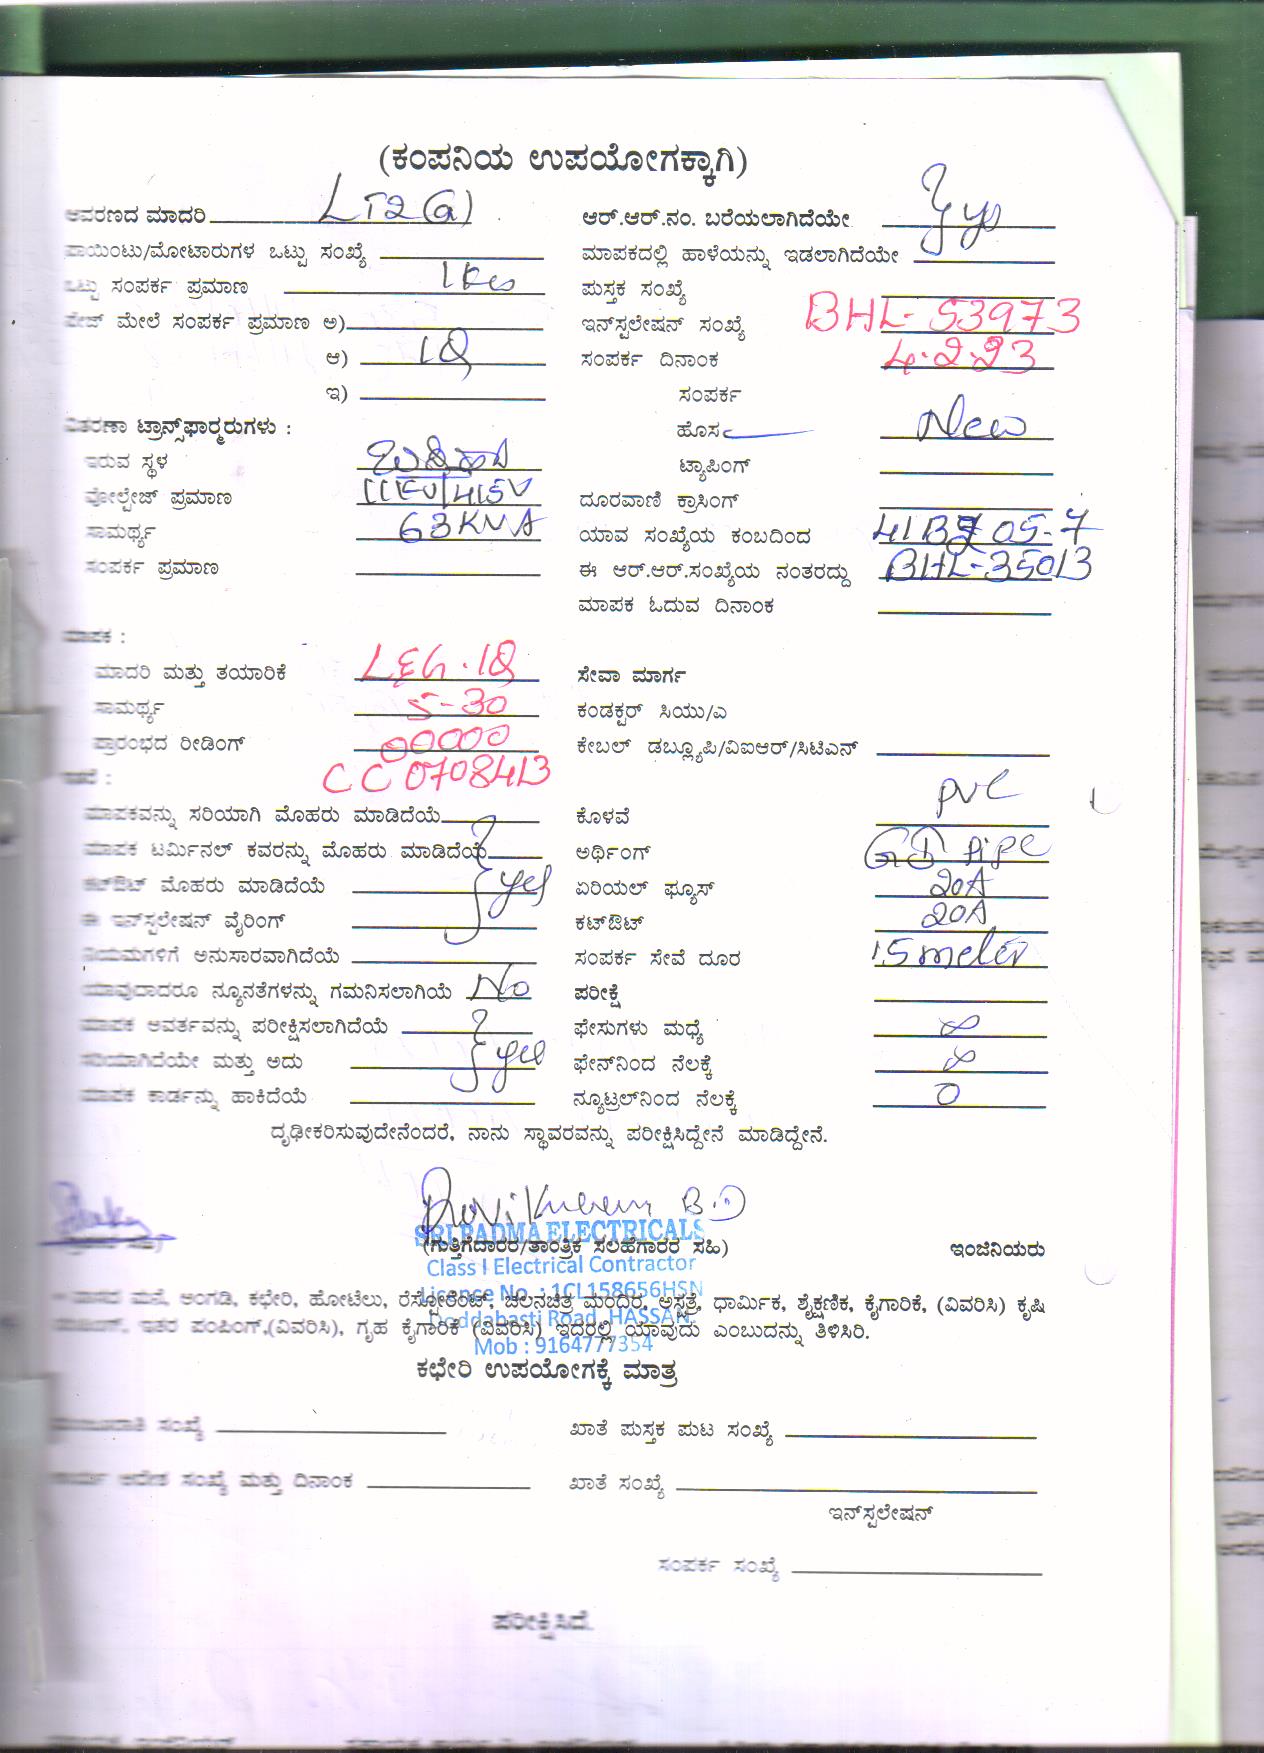 (ಕಂಪನಿಯ ಉಪಯೋಗಕ್ಕಾಗಿ)
ಆವರಣದ ಮಾದರಿ LT2(a) ಆರ್.ಆರ್.ನಂ. ಬರೆಯಲಾಗಿದೆಯೇ
ಪಾಯಿಂಟು/ಮೋಟಾರುಗಳ ಒಟ್ಟು ಸಂಖ್ಯೆ ಮಾಪಕದಲ್ಲಿ ಹಾಳೆಯನ್ನು ಇಡಲಾಗಿದೆಯೇ
ಒಟ್ಟು ಸಂಪರ್ಕ ಪ್ರಮಾಣ 1kw ಪುಸ್ತಕ ಸಂಖ್ಯೆ
ಪೇಜ್ ಮೇಲೆ ಸಂಪರ್ಕ ಪ್ರಮಾಣ ಅ) ಇನ್‌ಸ್ಟಲೇಷನ್ ಸಂಖ್ಯೆ BHL-53973
ಆ) 1Ø ಸಂಪರ್ಕ ದಿನಾಂಕ 4.2.23
ಇ) ಸಂಪರ್ಕ
ವಿತರಣಾ ಟ್ರಾನ್ಸ್‌ಫಾರ್ಮರುಗಳು : ಹೊಸ New
ಇರುವ ಸ್ಥಳ ಟ್ಯಾಪಿಂಗ್
ವೋಲ್ಟೇಜ್ ಪ್ರಮಾಣ 11KV/415V ದೂರವಾಣಿ ಕ್ರಾಸಿಂಗ್
ಸಾಮರ್ಥ್ಯ 63KVA ಯಾವ ಸಂಖ್ಯೆಯ ಕಂಬದಿಂದ
ಸಂಪರ್ಕ ಪ್ರಮಾಣ ಈ ಆರ್.ಆರ್.ಸಂಖ್ಯೆಯ ನಂತರದ್ದು BHL-35013
ಮಾಪಕ ಓದುವ ದಿನಾಂಕ
ಮಾಪಕ :
ಮಾದರಿ ಮತ್ತು ತಯಾರಿಕೆ L&G.1Ø ಸೇವಾ ಮಾರ್ಗ
ಸಾಮರ್ಥ್ಯ 5-30 ಕಂಡಕ್ಟರ್ ಸಿಯು/ಎ
ಪ್ರಾರಂಭದ ರೀಡಿಂಗ್ 00000 ಕೇಬಲ್ ಡಬ್ಲ್ಯೂಪಿ/ವಿಐಆರ್/ಸಿಟಿಎನ್
ಇತರೆ : CC0708413
ಮಾಪಕವನ್ನು ಸರಿಯಾಗಿ ಮೊಹರು ಮಾಡಿದೆಯೆ ಕೊಳವೆ PVC
ಮಾಪಕ ಟರ್ಮಿನಲ್ ಕವರನ್ನು ಮೊಹರು ಮಾಡಿದೆಯೆ ಅರ್ಥಿಂಗ್ GI Pipe
ಕಟ್‌ಔಟ್ ಮೊಹರು ಮಾಡಿದೆಯೆ yes ಏರಿಯಲ್ ಫ್ಯೂಸ್ 20A
ಈ ಇನ್‌ಸ್ಟಲೇಷನ್ ವೈರಿಂಗ್ ಕಟ್‌ಔಟ್ 20A
ನಿಯಮಗಳಿಗೆ ಅನುಸಾರವಾಗಿದೆಯೆ ಸಂಪರ್ಕ ಸೇವೆ ದೂರ 15 meter
ಯಾವುದಾದರೂ ನ್ಯೂನತೆಗಳನ್ನು ಗಮನಿಸಲಾಗಿಯೆ No ಪರೀಕ್ಷೆ
ಮಾಪಕ ಆವರ್ತವನ್ನು ಪರೀಕ್ಷಿಸಲಾಗಿದೆಯೆ ಫೇಸುಗಳು ಮಧ್ಯೆ ∞
ಸರಿಯಾಗಿದೆಯೇ ಮತ್ತು ಅದು yes ಫೇನ್‌ನಿಂದ ನೆಲಕ್ಕೆ ∞
ಮಾಪಕ ಕಾರ್ಡನ್ನು ಹಾಕಿದೆಯೆ ನ್ಯೂಟ್ರಲ್‌ನಿಂದ ನೆಲಕ್ಕೆ 0
ದೃಢೀಕರಿಸುವುದೇನೆಂದರೆ, ನಾನು ಸ್ಥಾವರವನ್ನು ಪರೀಕ್ಷಿಸಿದ್ದೇನೆ ಮಾಡಿದ್ದೇನೆ.
Ravi Kumar B.D
SRI PADMA ELECTRICALS
(ಗುತ್ತಿಗೆದಾರರ/ತಾಂತ್ರಿಕ ಸಲಹೆಗಾರರ ಸಹಿ) ಇಂಜಿನಿಯರು
Class I Electrical Contractor
Licence No. : 1CL158656HSN
ವಾಸದ ಮನೆ, ಅಂಗಡಿ, ಕಛೇರಿ, ಹೋಟೆಲು, ರೆಸ್ಟೋರೆಂಟ್, ಚಲನಚಿತ್ರ ಮಂದಿರ, ಅಸ್ಪತ್ರೆ, ಧಾರ್ಮಿಕ, ಶೈಕ್ಷಣಿಕ, ಕೈಗಾರಿಕೆ, (ವಿವರಿಸಿ) ಕೃಷಿ
Doddabasti Road, HASSAN.
ಇತರ ಪಂಪಿಂಗ್,(ವಿವರಿಸಿ), ಗೃಹ ಕೈಗಾರಿಕೆ (ವಿವರಿಸಿ) ಇದರಲ್ಲಿ ಯಾವುದು ಎಂಬುದನ್ನು ತಿಳಿಸಿರಿ.
Mob : 9164777354
ಕಛೇರಿ ಉಪಯೋಗಕ್ಕೆ ಮಾತ್ರ
ಸಂಖ್ಯೆ ಖಾತೆ ಪುಸ್ತಕ ಪುಟ ಸಂಖ್ಯೆ
ಆದೇಶ ಸಂಖ್ಯೆ ಮತ್ತು ದಿನಾಂಕ ಖಾತೆ ಸಂಖ್ಯೆ
ಇನ್‌ಸ್ಟಲೇಷನ್
ಸಂಪರ್ಕ ಸಂಖ್ಯೆ
ಪರೀಕ್ಷಿಸಿದೆ.